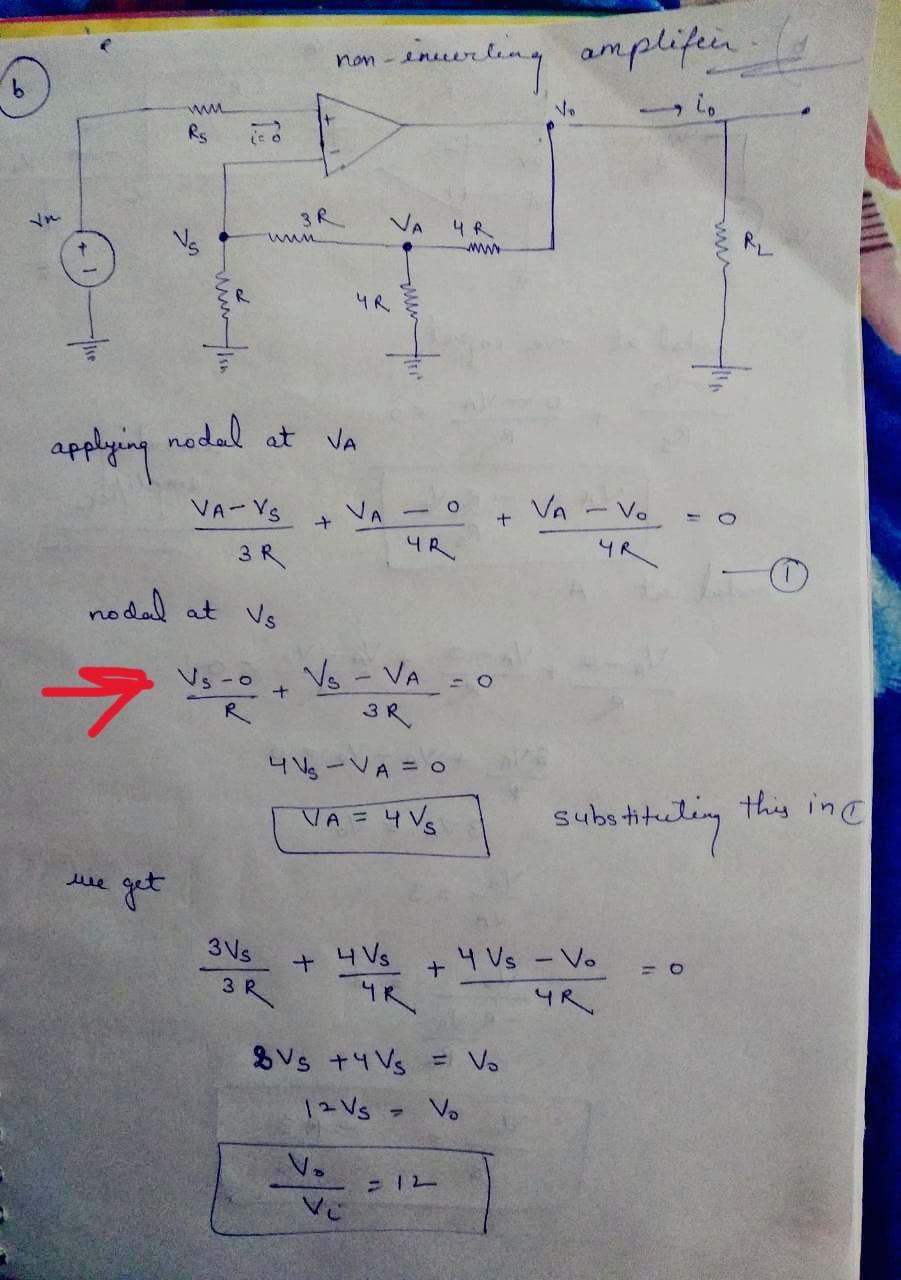 non-inverting amplifier
b
Vo → io
Rs i=0 + -
Vin + -
Vs 3R VA 4R RL
R 4R
applying nodal at VA
VA-Vs/3R + VA-0/4R + VA-Vo/4R = 0
— 1
nodal at Vs
Vs-0/R + Vs-VA/3R = 0
4Vs-VA=0
VA=4Vs substituting this in 1
we get
3Vs/3R + 4Vs/4R + 4Vs-Vo/4R = 0
8Vs+4Vs = Vo
12Vs = Vo
Vo/Vi = 12